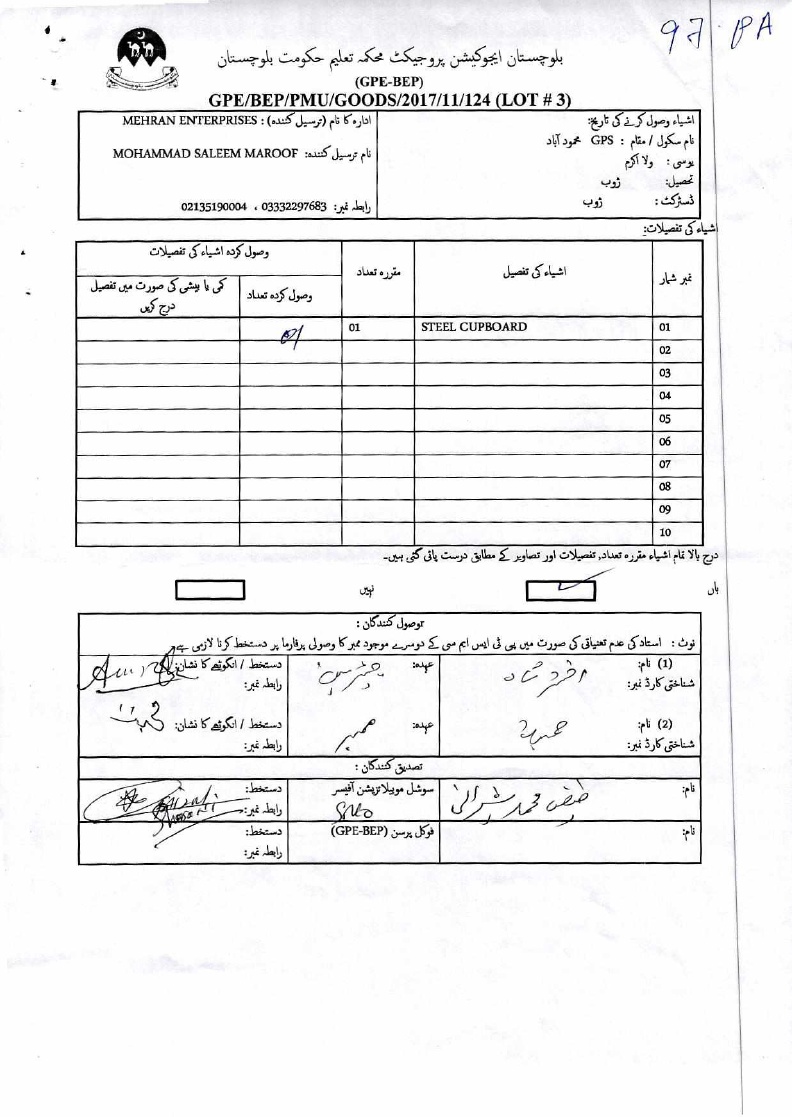 97 PA
بلوچستان ایجوکیشن پروجیکٹ محکمہ تعلیم حکومت بلوچستان
(GPE-BEP)
GPE/BEP/PMU/GOODS/2017/11/124 (LOT # 3)
اشیاء وصول کرنے کی تاریخ:
نام سکول / مقام : GPS محمود آباد
یوسی : ولا اکرم
تحصیل: ژوب
ڈسٹرکٹ : ژوب
ادارہ کا نام (ترسیل کنندہ) : MEHRAN ENTERPRISES
نام ترسیل کنندہ: MOHAMMAD SALEEM MAROOF
رابطہ نمبر: 03332297683 ، 02135190004
اشیاء کی تفصیلات:
نمبر شمار اشیاء کی تفصیل مقررہ تعداد وصول کردہ اشیاء کی تفصیلات
وصول کردہ تعداد کمی یا بیشی کی صورت میں تفصیل درج کریں
01 STEEL CUPBOARD 01 01
02
03
04
05
06
07
08
09
10
درج بالا تمام اشیاء مقررہ تعداد, تفصیلات اور تصاویر کے مطابق درست پائی گئی ہیں۔
ہاں نہیں
وصول کنندگان :
نوٹ : استاد کی عدم تعیناتی کی صورت میں پی ٹی ایس ایم سی کے دوسرے موجود ممبر کا وصولی پرفارما پر دستخط کرنا لازمی ہے
(1) نام: عہدہ: چئرمین دستخط / انگوٹھے کا نشان:
شناختی کارڈ نمبر: رابطہ نمبر:
(2) نام: عہدہ: ممبر دستخط / انگوٹھے کا نشان:
شناختی کارڈ نمبر: رابطہ نمبر:
تصدیق کنندگان :
نام: محمد شیرانی سوشل موبیلائزیشن آفیسر SMO دستخط:
رابطہ نمبر:
نام: فوکل پرسن (GPE-BEP) دستخط:
رابطہ نمبر: